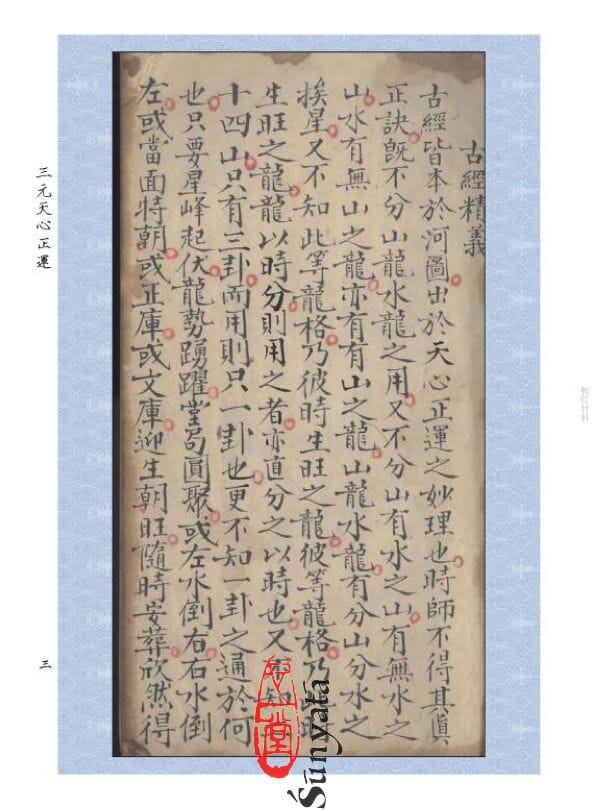 古經精義
古經皆本於河圖出於天心正運之妙理也時師不得其真
正訣既不分山龍水龍之用又不分山有水之山有無水之
山水有無山之龍亦有有山之龍山龍水龍有分山分水之
挨星又不知此等龍格乃彼時生旺之龍彼等龍格乃此時
生旺之龍龍以時分則用之者亦直分之以時也又不知
十四山只有三卦而用則只一卦也更不知一卦之通於何
也只要星峰起伏龍勢踴躍堂局圓聚或左水倒右右水倒
左或當面特朝或正庫或文庫迎生朝旺隨時安葬欣然得
三元天心正運
三
心一堂
Śūnyatā